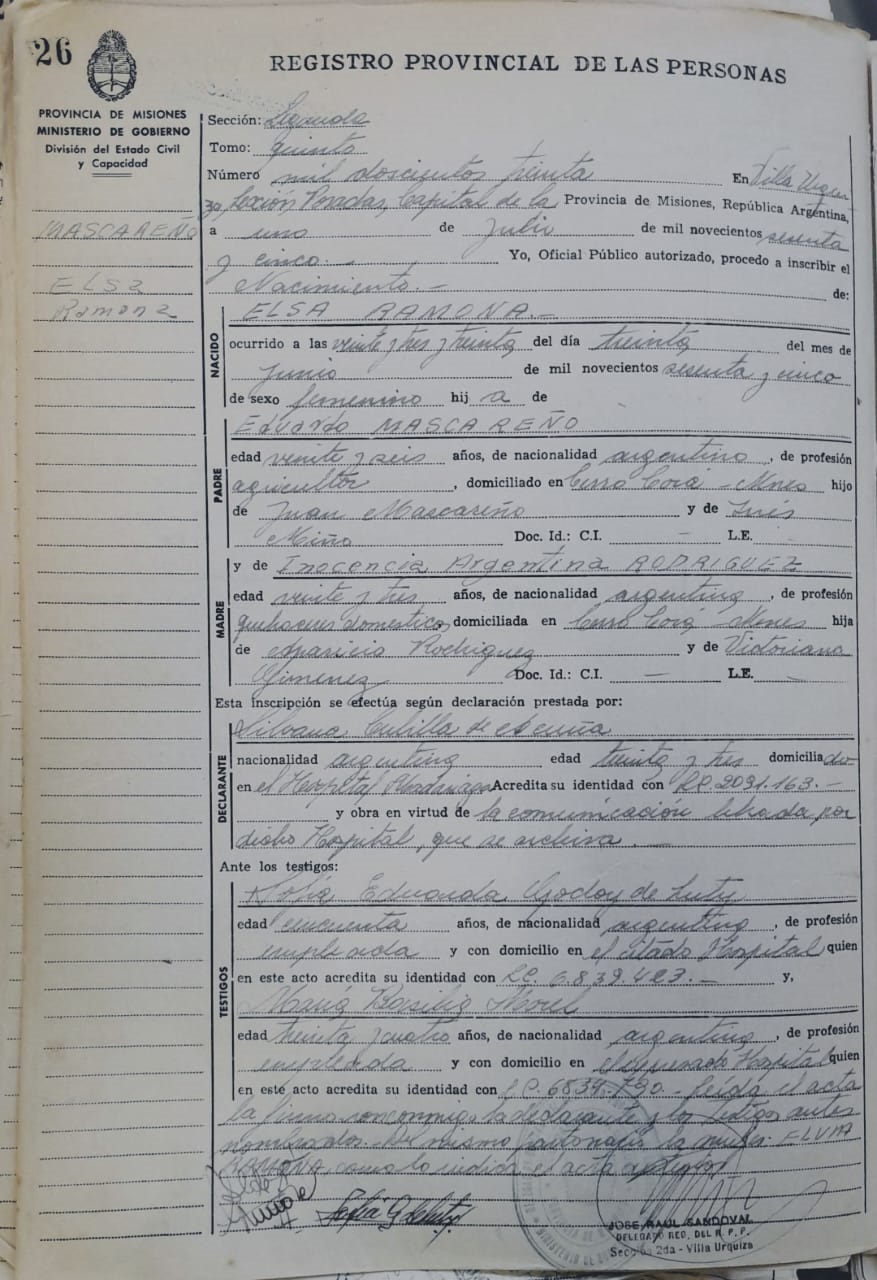 26
REGISTRO PROVINCIAL DE LAS PERSONAS
PROVINCIA DE MISIONES
MINISTERIO DE GOBIERNO
División del Estado Civil
y Capacidad
MASCAREÑO
ELSA
Ramona
Sección: Segunda
Tomo: quinto
Número mil doscientos treinta En Villa Urqui
za, Sección Posadas, Capital de la Provincia de Misiones, República Argentina,
a uno de Julio de mil novecientos sesenta
y cinco.- Yo, Oficial Público autorizado, procedo a inscribir el
Nacimiento.- de:
NACIDO
ELSA RAMONA.-
ocurrido a las veinte y tres y treinta del día treinta del mes de
Junio de mil novecientos sesenta y cinco
de sexo femenino hij a de
PADRE
Eduardo MASCAREÑO
edad veinte y seis años, de nacionalidad argentino, de profesión
agricultor, domiciliado en Cerro Corá - Mnes hijo
de Juan Mascareño y de
Miño Doc. Id.: C.I. — L.E. —
MADRE
y de Inocencia Argentina RODRIGUEZ
edad veinte y tres años, de nacionalidad argentina, de profesión
quehaceres domesticos, domiciliada en Cerro Corá - Mnes hija
de Aparicio Rodriguez y de Victoriana
Gimenez Doc. Id.: C.I. — L.E. —
Esta inscripción se efectúa según declaración prestada por:
DECLARANTE
Silvana de Acuña
nacionalidad argentina edad treinta y tres domiciliado
en el Hospital Madariaga Acredita su identidad con 2091.163.-
y obra en virtud de la comunicación librada por
dicho Hospital, que se archiva.-
Ante los testigos:
TESTIGOS
Sofía Eduarda Godoy de
edad cincuenta años, de nacionalidad argentina, de profesión
empleada y con domicilio en el citado Hospital quien
en este acto acredita su identidad con L.C. 6.839.423.- y,
María Basilia Morel
edad treinta y cuatro años, de nacionalidad argentina, de profesión
empleada y con domicilio en el expresado Hospital quien
en este acto acredita su identidad con L.C. 6839.790.- Leída el acta
la firma con conmigo la declarante y los testigos antes
nombrados. ELVIRA
RAMONA, como lo indica el acta
JOSE RAUL SANDOVAL
DELEGADO REG. DEL R. P. P.
Sección 2da - Villa Urquiza